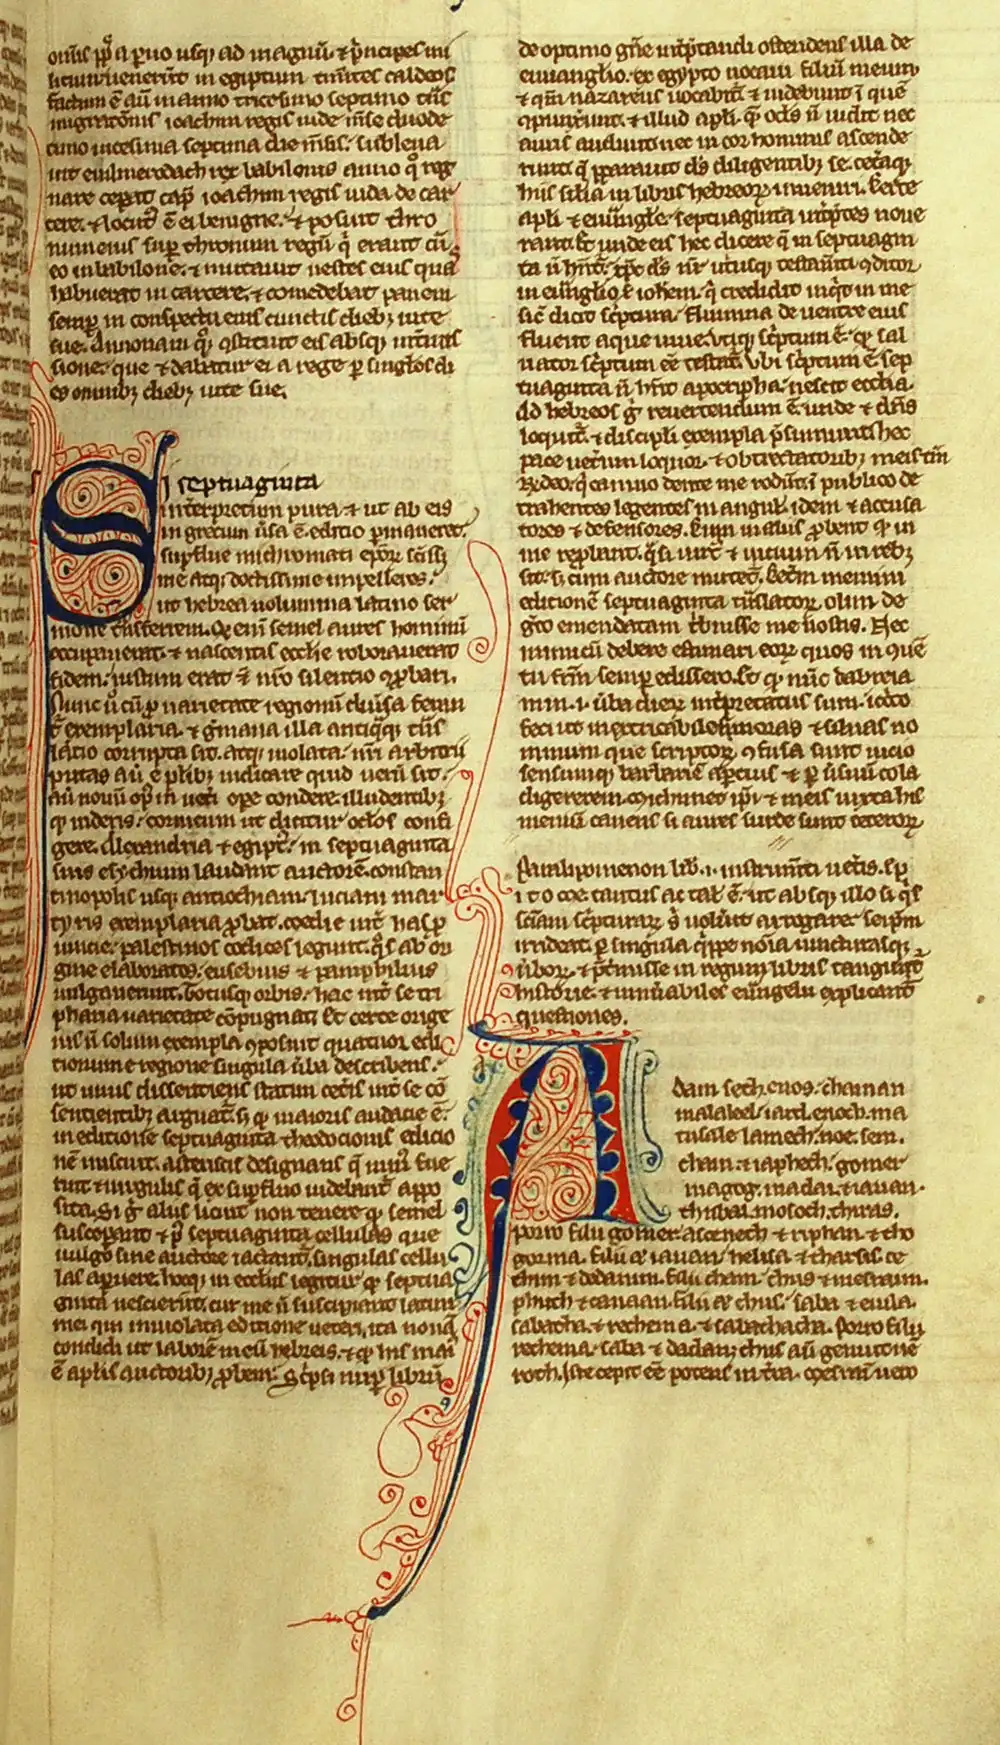 omnis pp̃ a paruo usq; ad magnũ. ⁊ p̃ncipes mi
litum uenerũt in egiptum timẽtes caldeos
factum ẽ aũ in anno tricesimo septimo tñs
migratõnis ioachim regis iude mẽse duode
cimo uicesima septima die mẽsis. subleua
uit euilmerodach rex babilonis anno q̊ reg
nare ceperat cap̃ ioachim regis iuda de car
cere. ⁊ locut̃ ẽ ei benigne. ⁊ posuit thro
num eius sup̃ thronum regũ q̃ erant cũ
eo in babilone. ⁊ mutauit uestes eius quas
habuerat in carcere. ⁊ comedebat panem
semp̃ in conspectu eius cunctis dieb; uite
sue. Annonam q̊q; ꝯstituit ei absq; int̃mis
sione. que ⁊ dabatur ei a rege p̱ singlos di
es omnib; dieb; uite sue.
Si septuaginta
interpretum pura. ⁊ ut ab eis
in grecum ũsa ẽ. editio p̱maneret.
supflue mi chromati ep̃or̃ sc̃iss̃
me atq; doctissime impelleres.
ut hebrea uolumina latino ser
mone tñsferrem. Q̃ eni semel aures hominũ
occupauerat. ⁊ nascentis ecclie roborauerat
fidem. iustum erat ẽ nr̃o silentio ꝯprobari.
Nunc ũ cũ p̱ uarietate regionũ diũsa ferun
t̃ exemplaria. ⁊ g̃mana illa antiq̃q; tñs
latio corrupta sit. atq; uiolata. nr̃i arbitrii
putas aũ ẽ plib; iudicare quid uerũ sit.
aũ nouũ op̃ in ueti ope condere. illudentib;
q; iudeis. cornicum ut dicitur oc̃los confi
gere. Alexandria ⁊ egipt̃. in septuaginta
suis esychium laudant auctorẽ. constan
tinopolis usq; antiochiam. luciani mar
tyris exemplaria ꝓbat. medie int̃ has ꝓ
uincie. palestinos codices legunt. q̊s ab ori
gine elaboratos. eusebius ⁊ pamphilius
uulgauerunt. Totusq; orbis. hac int̃ se tri
pharia uarietate cõpugnat. Et certe orige
nis ñ solum exempla ꝯposuit quatuor edi
tionum e regione singula ũba describens.
ut unus dissentiens statim cet̃is int̃ se cõ
sentientib; arguat̃. s; q̃ maioris audacie ẽ.
in editione septuaginta theodocionis edicio
nẽ miscuit. asteriscis designans q̃ minus fue
rint ⁊ uirgulis q̃ ex supfluo uidebant̃ appo
sita. Si g̊ aliis licuit non tenere q̃ semel
susceperant ⁊ p̃ septuaginta cellulas que
uulgo sine auctore iactant̃. singulas cellu
las aperuere. hocq; in ecclis legitur q̃ septua
ginta nescierũt. cur me ñ suscipiant latini
mei qui inuiolata editione ueteri. ita nouã
condidi ut laborẽ meũ hebreis. ⁊ q̃ his mai
ẽ aplis auctorib; ꝓbem. Sc̃psi nup̃ librũ
de optimo gñe int̃p̃tandi ostendens illa de
euuanglio. ex egypto uocaui filiũ meum.
⁊ qm̃ nazareus uocabit̃. ⁊ uidebunt ĩ quẽ
ꝯpunxunt. ⁊ illud apli. q̃ oc̃ls ñ uidit nec
auris audiuit. nec in cor hominis ascende
runt q̃ p̃parauit d̃s diligentib; se. cet̃aq;
his similia in libris hebreor̃ inueniri. Certe
apli ⁊ euũgl̃e. septuaginta int̃p̃tes noue
rant. Et unde eis hec dicere q̃ in septuagin
ta ñ hñt̃. xp̃c d̃s nr̃ utiusq; testam̃ti ꝯditor
in euũglio s̃ ioh̃em. q̃ credidit inq̃t in me
sic̃ dicit sc̃ptura. flumina de uentre eius
fluent aque uiue. Vtiq; sc̃ptum ẽ. q̃ sal
uator sc̃ptum eẽ testat̃. Vbi sc̃ptum ẽ. sep
tuaginta ñ hñt. apocripha nescit ecclia.
Ad hebreos g̊ reuertendum ẽ. unde ⁊ dñs
loquit̃. ⁊ discipli exempla p̃sumunt. hec
pace uet̃um loquor. ⁊ obtrectatorib; meis tm̃
r̃ndeo. q̃ canino dente me rodũt. ĩ publico de
trahentes legentes in angul̃. idem ⁊ accusa
tores ⁊ defensores. Cum in aliis ꝓbent q̃ in
me rep̱bant. q̃si uirt̃ ⁊ uicium ñ in reb;
sit. s; cum auctore mutet̃. Cet̃m memini
editionẽ septuaginta tñslator̃ olim de
g̃co emendatam t̃buisse me nostis. Nec
inimicũ debere estimari eor̃ quos in quẽ
tu fr̃m semp̃ edissero. Et q̃ nũc dabreia
min .i. ũba dier̃ int̃p̃retatus sum. icc̃o
feci ut inextricabiles moras ⁊ siluas no
minum que scriptor̃ ꝯfusa sunt uicio
sensumq; barbariẽ ap̱tius ⁊ p̱ ũsuũ cola
digererem. michimet ip̃i ⁊ meis iuxta his
menium canens si aures surde sunt ceteror̃.
Paralipomenon lib̃. .i. instrum̃ti uet̃is. Ep̃i
i t o coe. tantus ac tal̃ ẽ. ut absq; illo si q̃s
sciam sc̃pturar̃ s̃ uolũit arrogare. seip̃m
irrideat. p̱ singula q̃ppe no̅ia. iuncturasq;
ũbor̃. ⁊ p̃tm̃isse in regum libris tangunt̃
historie. ⁊ inniũabiles euũgelii explicant̃
questiones.
Adam seth. enos. chainan
malaleel. iared. enoch. ma
tusale. lamech. noe. sem.
cham. ⁊ iapheth. gomer
magog. madai. ⁊ iauan.
thubal. mosoch. thiras.
porro filii gomer. ascenech ⁊ riphan. ⁊ tho
gorma. filii aũ iauan. helisa. ⁊ tharsis. ce
thim ⁊ dodanim. filii cham. chus ⁊ mesraim.
phuth ⁊ canaan. filii aũ chus. saba ⁊ euila.
sabatha. ⁊ rechema. ⁊ sabathacha. Porro filii
rechema. saba ⁊ dadan. chus aũ genuit ne
roth. iste cepit eẽ potens in t̃ra. mesraĩ uero